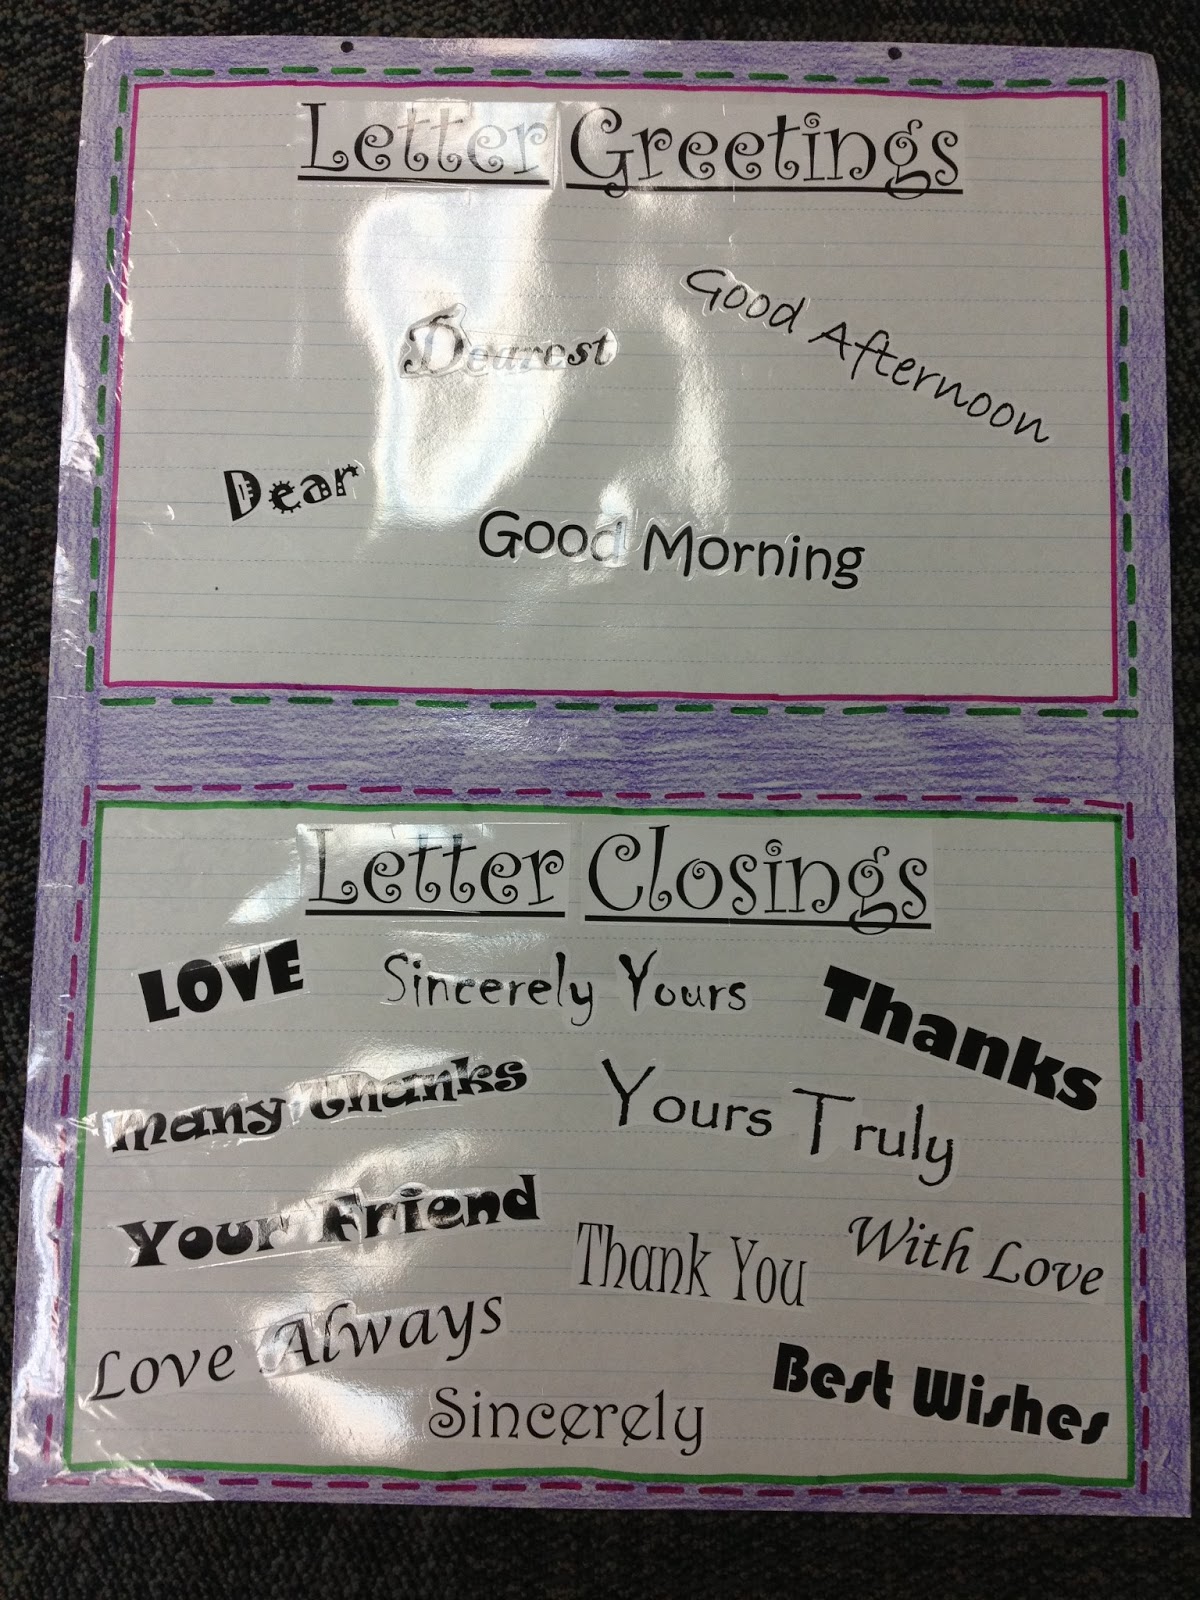 Letter Greetings
Dearest
Good Afternoon
Dear
Good Morning
Letter Closings
LOVE
Sincerely Yours
Thanks
Many Thanks
Yours Truly
Your Friend
Thank You
With Love
Love Always
Sincerely
Best Wishes